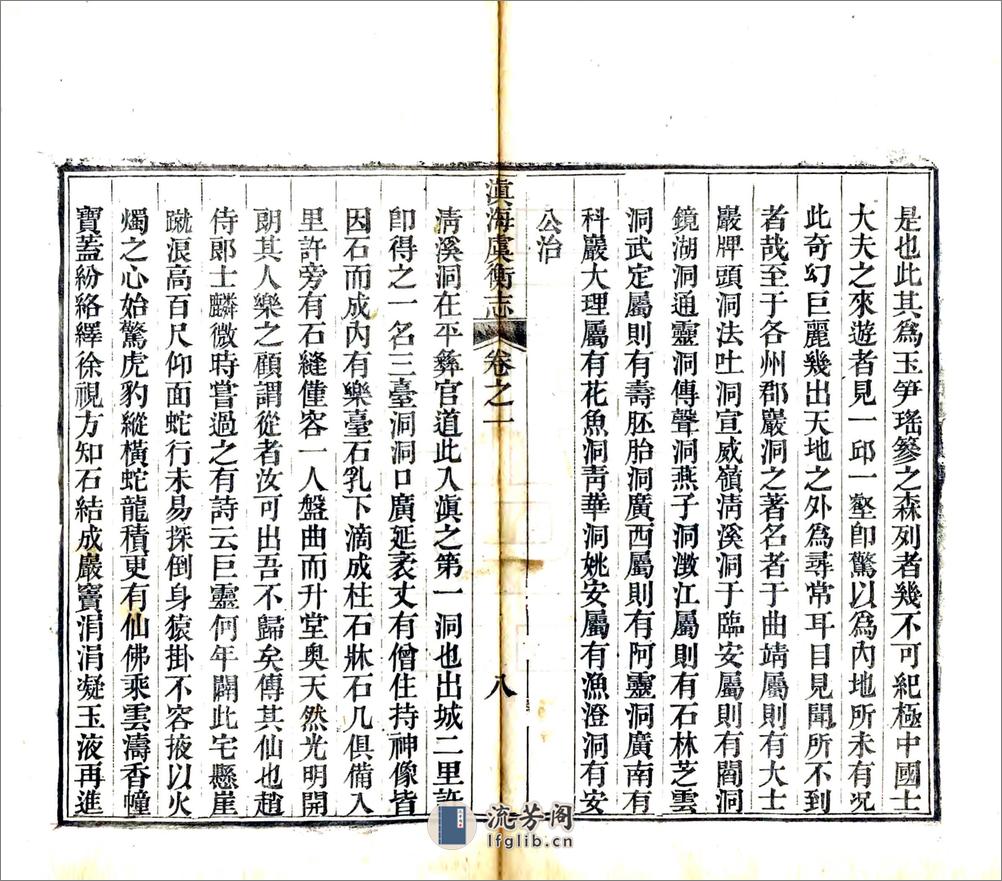 是也此其為玉筍瑤篸之森列者幾不可紀極中國士
大夫之來遊者見一邱一壑卽驚以為內地所未有況
此奇幻巨麗幾出天地之外為尋常耳目見聞所不到
者哉至于各州郡巖洞之著名者于曲靖屬則有大士
巖牌頭洞法吐洞宣威嶺淸溪洞于臨安屬則有閻洞
鏡湖洞通靈洞傳聲洞燕子洞澂江屬則有石林芝雲
洞武定屬則有壽胚胎洞廣西屬則有阿靈洞廣南有
科巖大理屬有花魚洞靑華洞姚安屬有漁澄洞有安
公治
滇海虞衡志 卷之一 八
淸溪洞在平彝官道此入滇之第一洞也出城二里許
卽得之一名三臺洞洞口廣延袤丈有僧住持神像皆
因石而成內有樂臺石乳下滴成柱石牀石几俱備入
里許旁有石縫僅容一人盤曲而升堂奧天然光明開
朗其人樂之顧謂從者汝可出吾不歸矣傳其仙也趙
侍郞士麟微時嘗過之有詩云巨靈何年闢此宅懸崖
蹴浪高百尺仰面蛇行未易探倒身猿掛不容掖以火
燭之心始驚虎豹縱橫蛇龍積更有仙佛乘雲濤香幢
寶蓋紛絡繹徐視方知石結成巖竇涓涓凝玉液再進
流芳阁
lfglib.cn